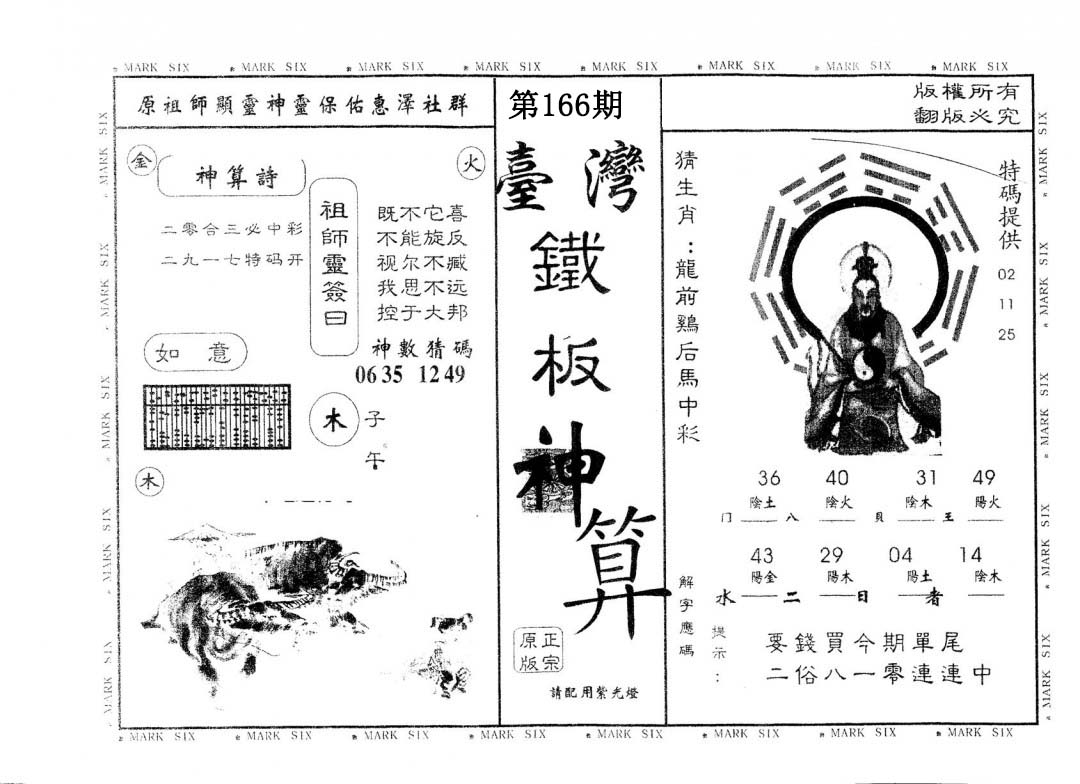 MARK SIX MARK SIX MARK SIX MARK SIX MARK SIX MARK SIX MARK SIX MARK SIX
原祖師顯靈神靈保佑惠澤社群
金
火
神算詩
二零合三必中彩
二九一七特码开
祖師靈簽曰
既不它喜
不能旋反
视尔不臧
我思不远
控于大邦
神數猜碼
06 35 12 49
如意
木
子
午
木
第166期
臺灣
鐵
板
神
算
正宗
原版
請配用紫光燈
版權所有
翻版必究
猜生肖：龍前鷄后馬中彩
特碼提供
02
11
25
36 40 31 49
陰土 陰火 陰木 陽火
门 八 貝 王
43 29 04 14
陽金 陽木 陽土 陰木
水 二 日 者
解字應碼
提示：
要錢買今期單尾
二俗八一零連連中
MARK SIX MARK SIX MARK SIX MARK SIX MARK SIX MARK SIX MARK SIX MARK SIX
MARK SIX MARK SIX MARK SIX MARK SIX MARK SIX
MARK SIX MARK SIX MARK SIX MARK SIX MARK SIX